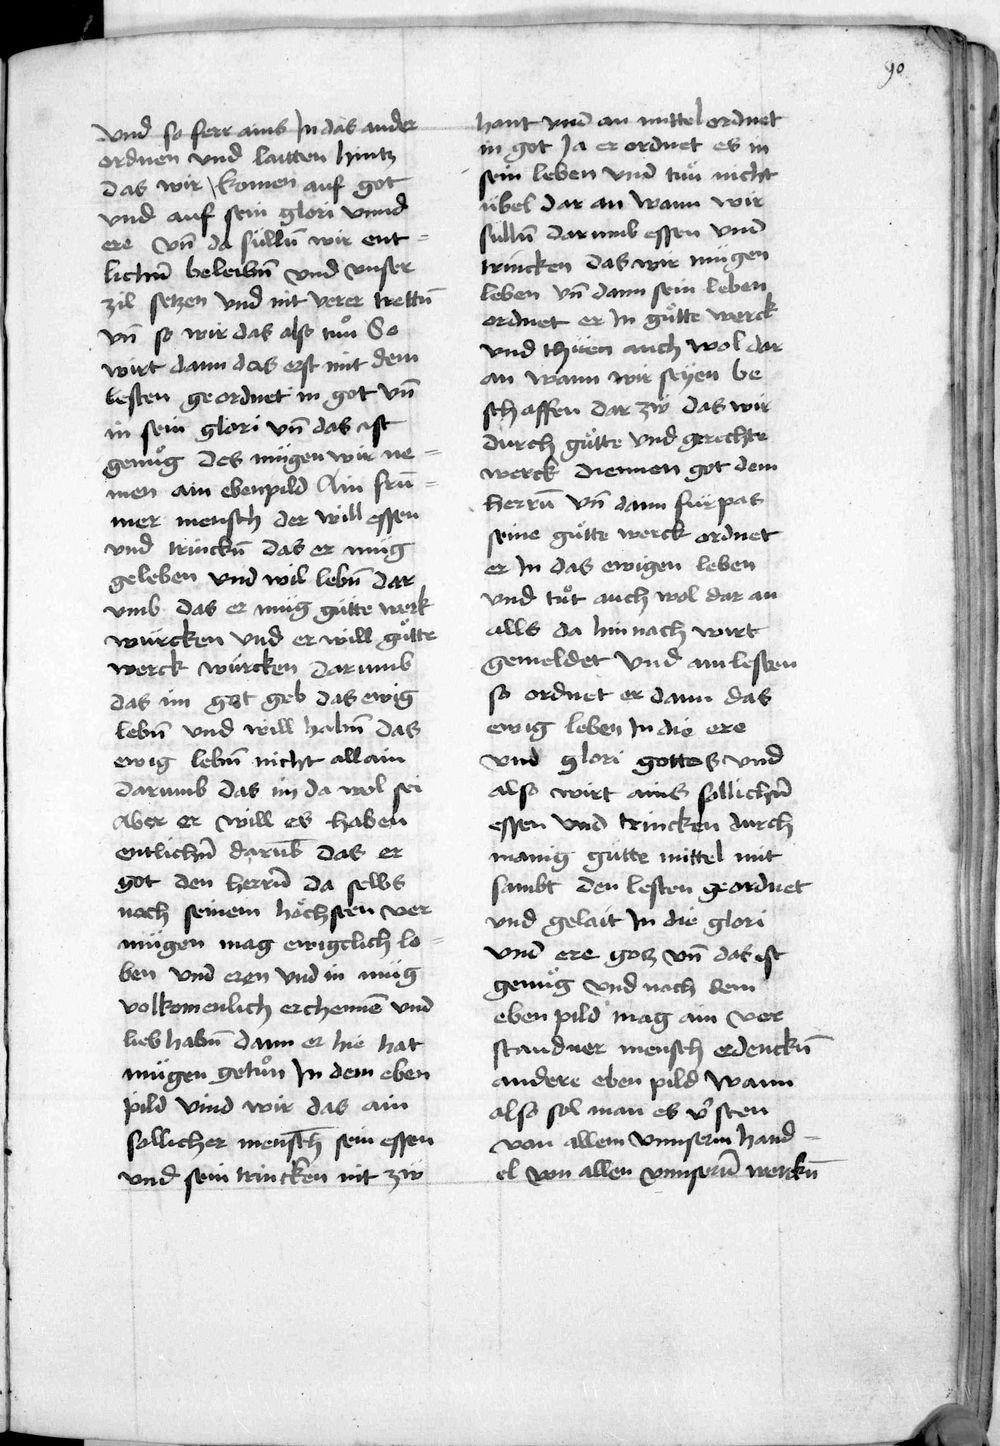 90
vnd so ferr ains In das ander
ordnen vnd laitten hintz
das wir komen auf got
vnd auf sein glori vnnd
ere vn̄ da süllūn wir ent=
lichn̄ beleibn̄ vnd vnser
zil setzen vnd nit verer trettn̄
vn̄ so wir das also tuͦn So
wirt dann das erst mit dem
lesten geordnet in got vn̄
in sein glori vn̄ das ist
genuͦg des mügen wir ne=
men ain ebenpild Ain frū=
mer mensch der will essen
vnd trinckn̄ das er müg
geleben vnd wil lebn̄ dar
vmb das er müg gütte werk
würcken vnd er will guͦtte
werck würcken darumb
das im got geb das ewig
lebn̄ vnd will habn̄ das
ewig lebn̄ nicht allain
darumb das im da wol sei
Aber er will es haben
entlichn̄ darūb das er
got den herrn̄ da selbs
nach seinem höchsten ver
mügen mag ewigclich lo=
ben vnd eren vnd in müg
volkomenlich erchennē vnd
lieb habn̄ dann er hie hat
mügen getuͦn In dem eben
pild vind wir das ain
sollicher mensch sein essen
vnd sein trincken nit zw
hant vnd an mittel ordnet
in got Ja er ordnet es in
sein leben vnd tuͦt nicht
übel dar an wann wir
sülln̄ darumb essen vnd
trincken das wir mügen
leben vn̄ dann sein leben
ordnet er In guͦtte werck
vnd thüen auch wol dar
an wann wir seyen be
schaffen dar zw das wir
durch guͦtte vnd gerechte
werck diennen got dem
herrn̄ vn̄ dann fürpas
seine guͦtte werck ordnet
er In das ewigen leben
vnd tuͦt auch wol dar an
alls da hinnach wirt
gemeldet vnd am lesten
so ordnet er dann das
ewig leben In die ere
vnd glori gottes vnd
also wirt ains sollichn̄
essen vnd trincken durch
manig gutte mittel mit
sambt den lesten geordnet
vnd gelait In die glori
vnd ere gotz vn̄ das ist
genuͦg vnd nach dem
eben pild mag ain ver
standner mensch erdenckn̄
andere eben pild wann
also sol man es v̓sten
von allem vnnserm hand=
el von allen vnnsern̄ werckn̄